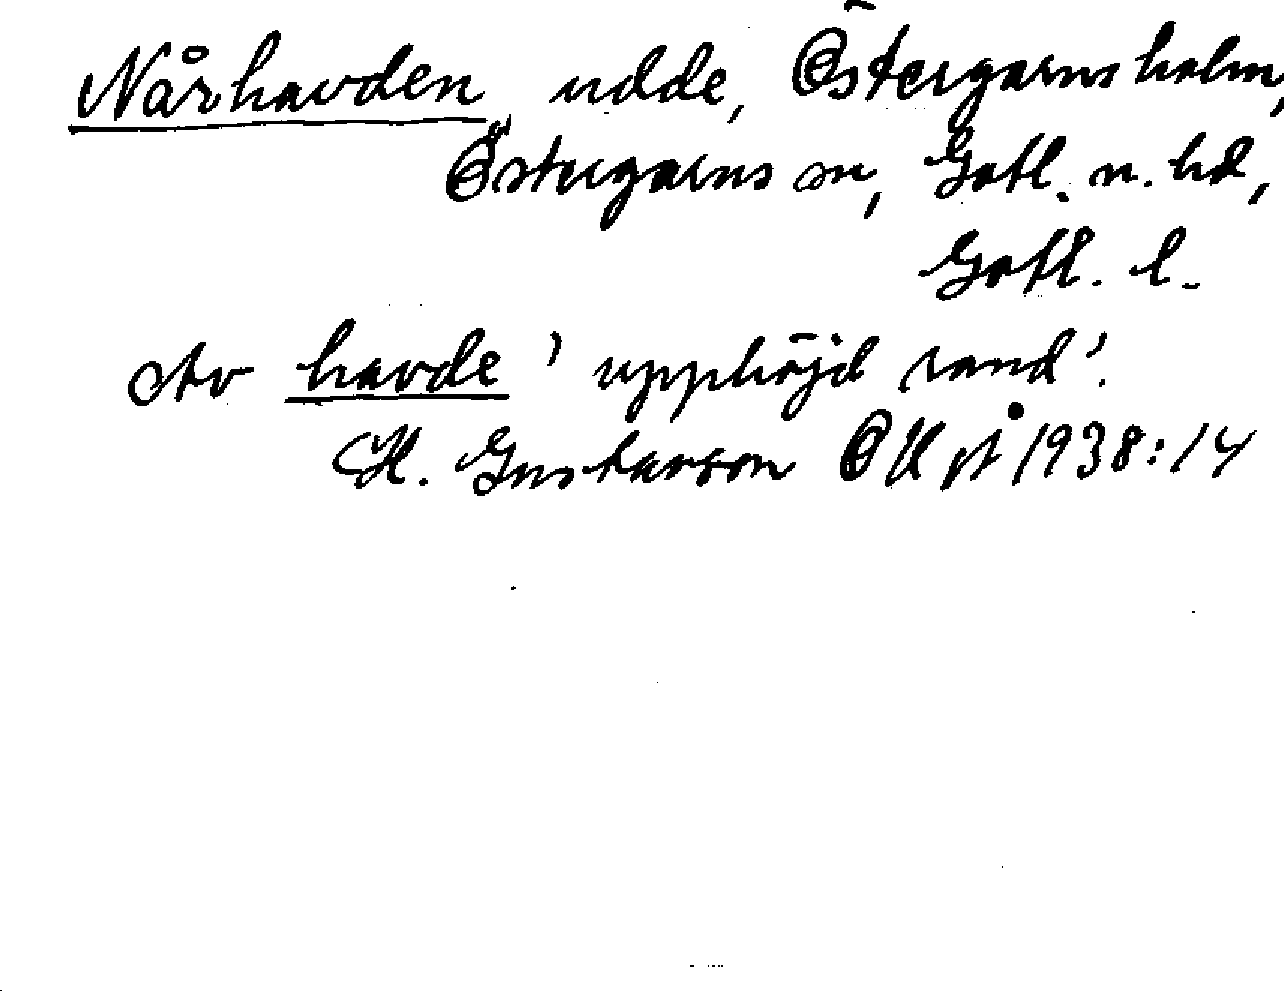 Nårhavden, udde, Östergarnsholm,
Östergarns sn, Gotl. n. hd,
Gotl. l.
Av havde 'upphöjd rand'.
H. Gustavson 1938:14